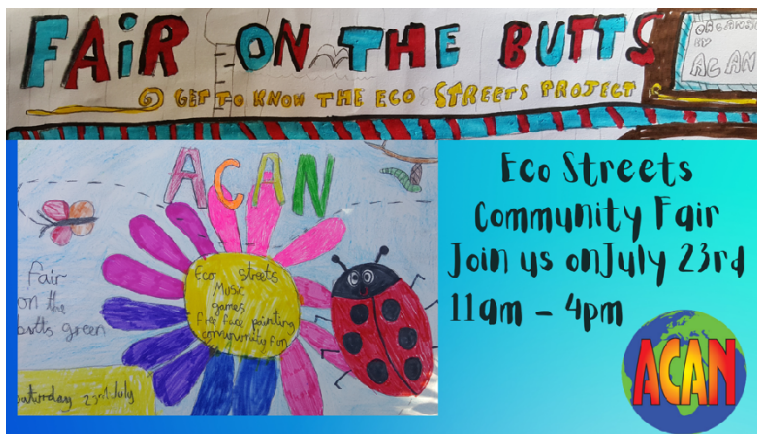 FAiR ON THE BUTTS
ORGANISED
BY
ACAN
GET TO KNOW THE ECO STREETS PROJECT
ACAN
Eco streets
Music
games
free face painting
community fun
fair
on the
butts green
Saturday 23rd July
Eco Streets
Community Fair
Join us onJuly 23rd
11am - 4pm
ACAN